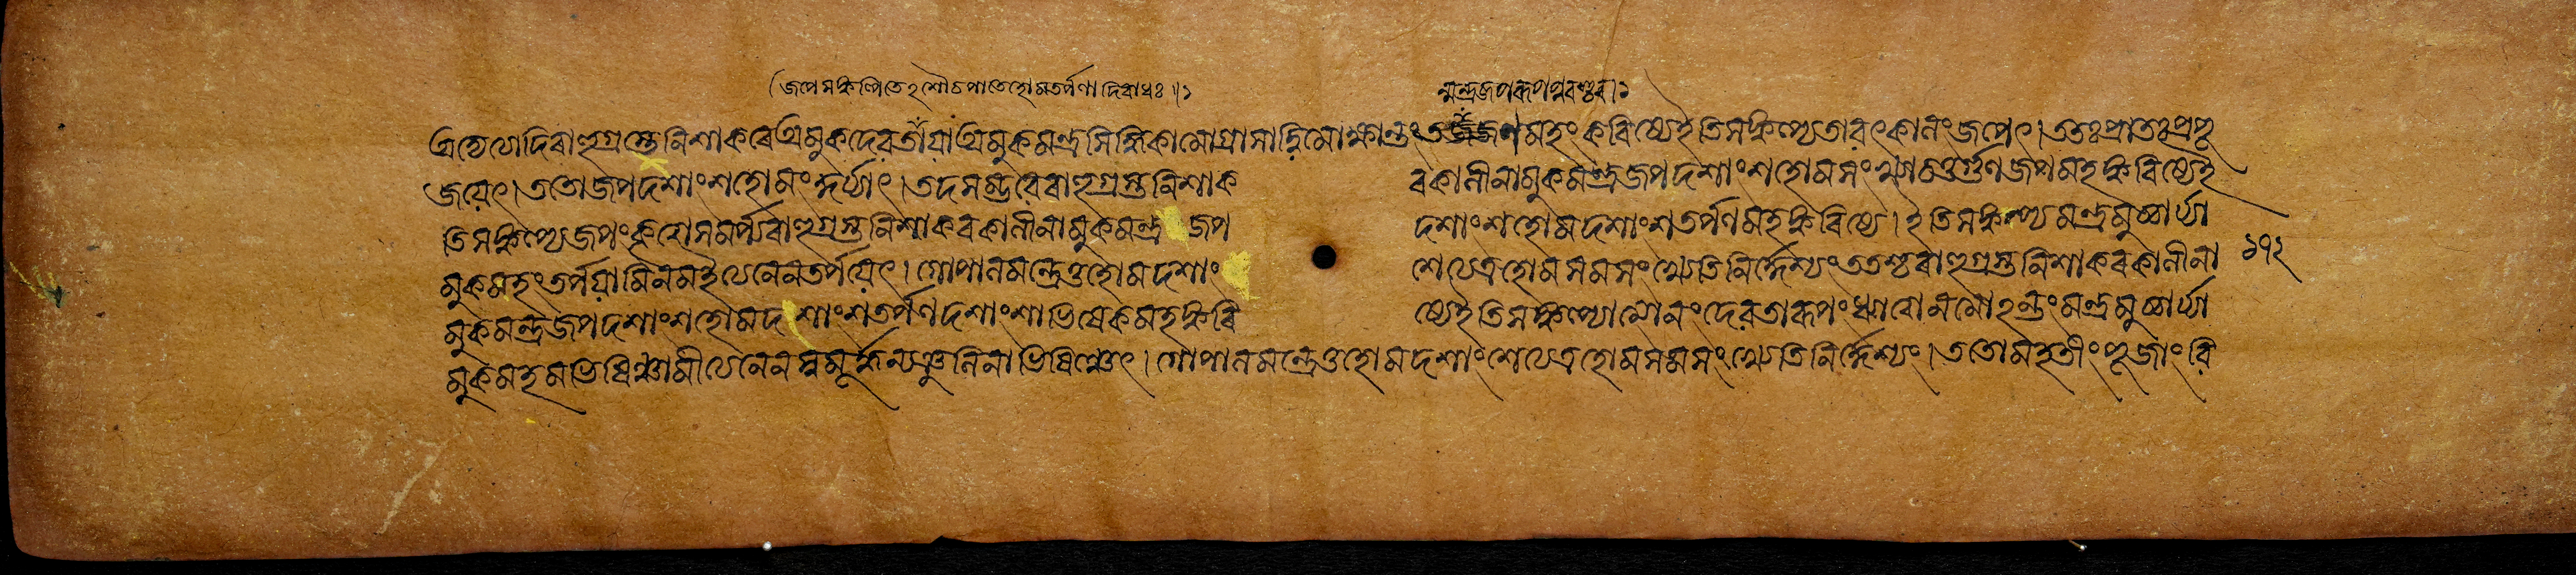 (জপে সঙ্কল্পিতেঽশৌচপাতে হোমতর্পণাদিবাধঃ॥১
ন্মন্ত্রজপরূপপুরশ্চর।১
অদ্যেত্যাদি রাহুগ্রস্তে নিশাকরে অমুকদেবতায়া অমুকমন্ত্রসিদ্ধিকামো গ্রাসাদ্বিমোক্ষান্তং ত ণমহং করিষ্যে ইতি সঙ্কল্প্য তাবৎকালং জপেৎ। ততঃ প্রাতঃ প্রপূ
জয়েৎ। ততো জপদশাংশহোমং কুর্য্যাৎ। তদসম্ভবে রাহুগ্রস্তনিশাক রকালীনামুকমন্ত্রজপদশাংশহোমসংখ্যাচতুর্গুণজপমহঙ্করিষ্যে ই
তি সঙ্কল্প্য জপং কৃত্বা সমর্প্য রাহুগ্রস্তনিশাকরকালীনামুকমন্ত্রজপ দশাংশহোমদশাংশতর্পণমহঙ্করিষ্যে। ইতি সঙ্কল্প্য মন্ত্রমুচ্চার্য্যা
মুকমহং তর্পয়ামি নম ইত্যনেন তর্পয়েৎ। গোপালমন্ত্রে তু হোমদশাং শেত্যত্র হোমসমসংখ্যেতি নির্দ্দেশ্যং ততশ্চ রাহুগ্রস্তনিশাকরকালীনা
মুকমন্ত্রজপদশাংশহোমদশাংশতর্পণদশাংশাভিষেকমহঙ্করি ষ্যে ইতি সঙ্কল্প্যাত্মানং দেবতারূপং ধ্যাত্বা নমোঽন্তং মন্ত্রমুচ্চার্য্যা
মুকমহমভিষিঞ্চামীত্যনেন স্বমূর্দ্ধন্যঞ্জলিনাভিষিঞ্চেৎ। গোপালমন্ত্রে তু হোমদশাংশেত্যত্র হোমসমসংখ্যেতি নির্দ্দেশ্যং। ততো মহতীং পূজাং বি
১৭২